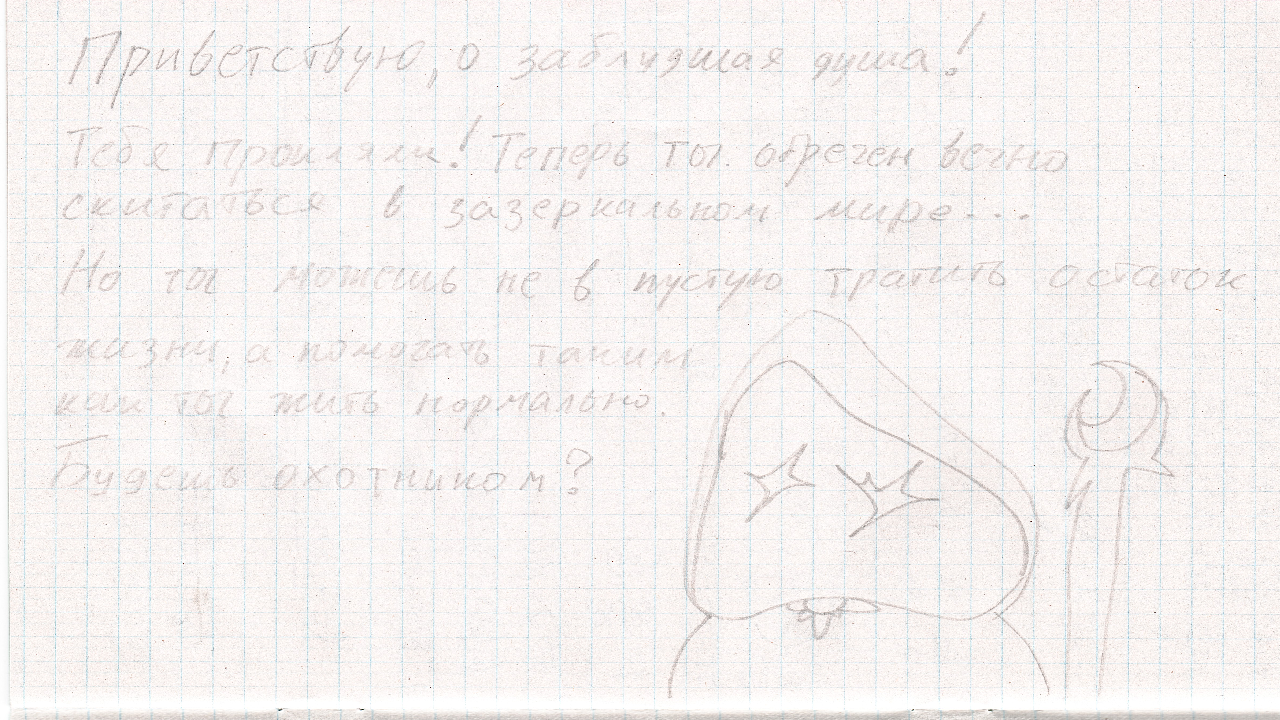 Приветствую, о заблудшая душа!
Тебя прокляли! Теперь ты обречен вечно
скитаться в зазеркальном мире...
Но ты можешь не в пустую тратить остаток
жизни, а помогать таким
как ты жить нормально.
Будешь охотником?